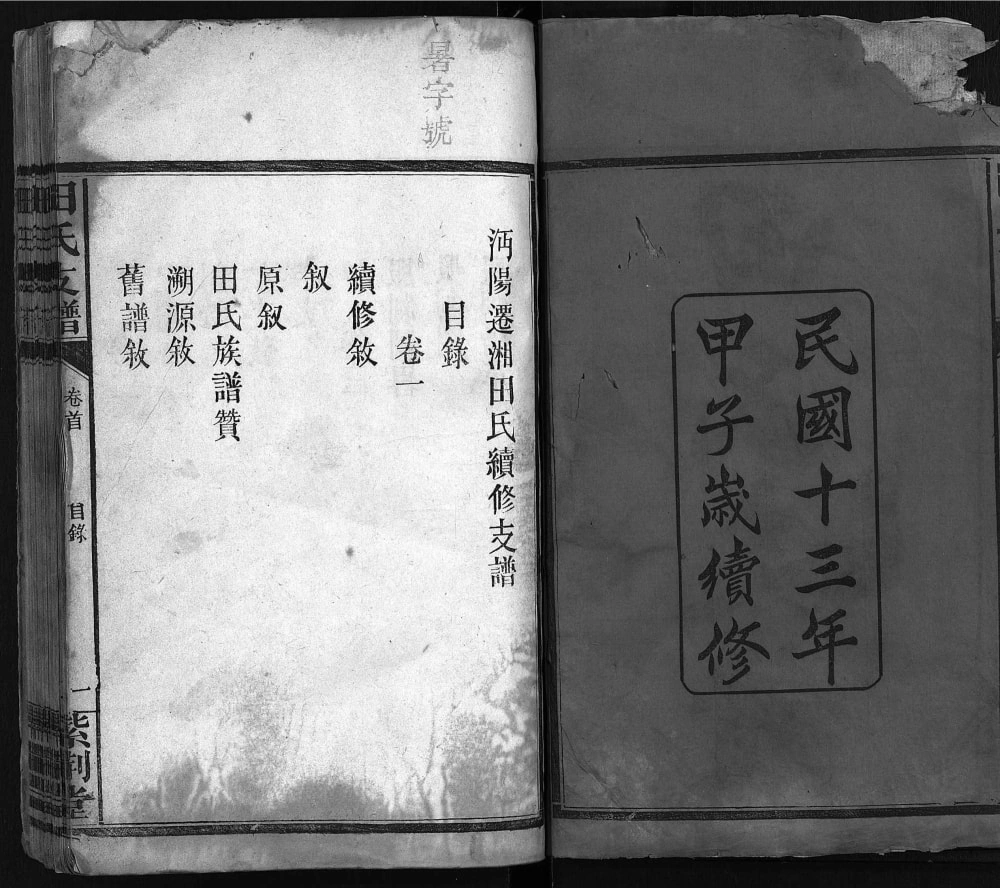 民國十三年
甲子歲續修
暑字號
沔陽遷湘田氏續修支譜
目錄
卷一
續修敘
叙
原叙
田氏族譜贊
溯源敘
舊譜敘
田氏支譜
卷首
目錄
一
紫荊堂